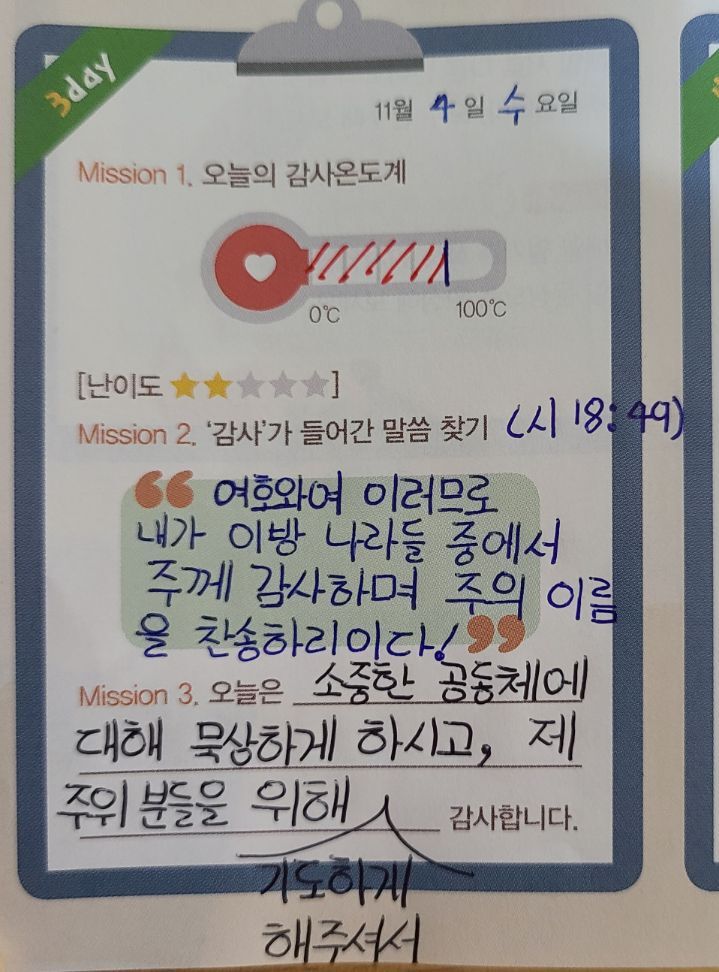 3day
11월 4일 수요일
Mission 1. 오늘의 감사온도계
0℃ 100℃
[난이도 ★★★★★]
Mission 2. '감사'가 들어간 말씀 찾기 (시 18:49)
“ 여호와여 이러므로
내가 이방 나라들 중에서
주께 감사하며 주의 이름
을 찬송하리이다! ”
Mission 3. 오늘은 소중한 공동체에
대해 묵상하게 하시고, 제
주위 분들을 위해 감사합니다.
기도하게
해주셔서